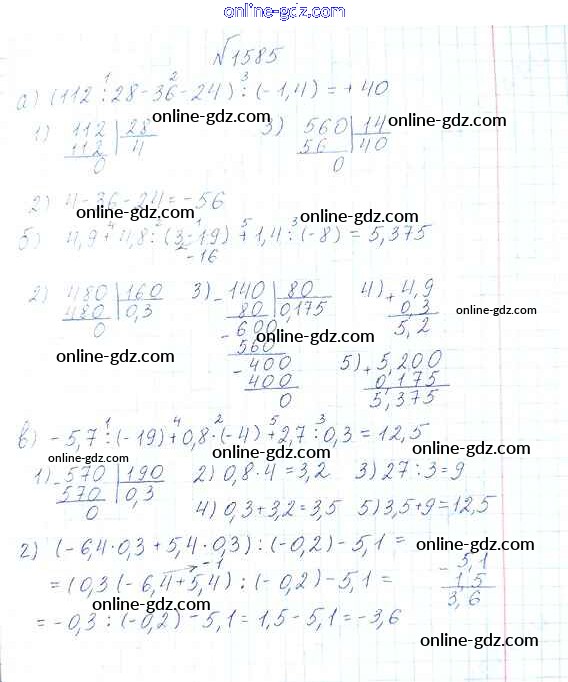 online-gdz.com
№1585
а) (112 : 28 - 36 - 24) : (-1,4) = +40
1) 112 | 28 3) 560 | 14
112 | 4 56 | 40
0 0
2) 4 - 36 - 24 = -56
б) 4,9 + 4,8 : (3 - 19) + 1,4 : (-8) = 5,375
-16
2) 480 | 160 3) - 140 | 80 4) + 4,9
480 | 0,3 80 | 0,175 0,3
0 - 600 5,2
560
- 400 5) + 5,200
400 0,175
0 5,375
в) -5,7 : (-19) + 0,8 · (-4) + 2,7 : 0,3 = 12,5
1) - 570 | 190 2) 0,8 · 4 = 3,2 3) 27 : 3 = 9
570 | 0,3
0 4) 0,3 + 3,2 = 3,5 5) 3,5 + 9 = 12,5
г) (-6,4 · 0,3 + 5,4 · 0,3) : (-0,2) - 5,1 =
= (0,3 (-6,4 + 5,4) : (-0,2) - 5,1 = - 5,1
-1 1,5
3,6
= -0,3 : (-0,2) - 5,1 = 1,5 - 5,1 = -3,6
online-gdz.com
online-gdz.com
online-gdz.com
online-gdz.com
online-gdz.com
online-gdz.com
online-gdz.com
online-gdz.com
online-gdz.com
online-gdz.com
online-gdz.com
online-gdz.com
online-gdz.com